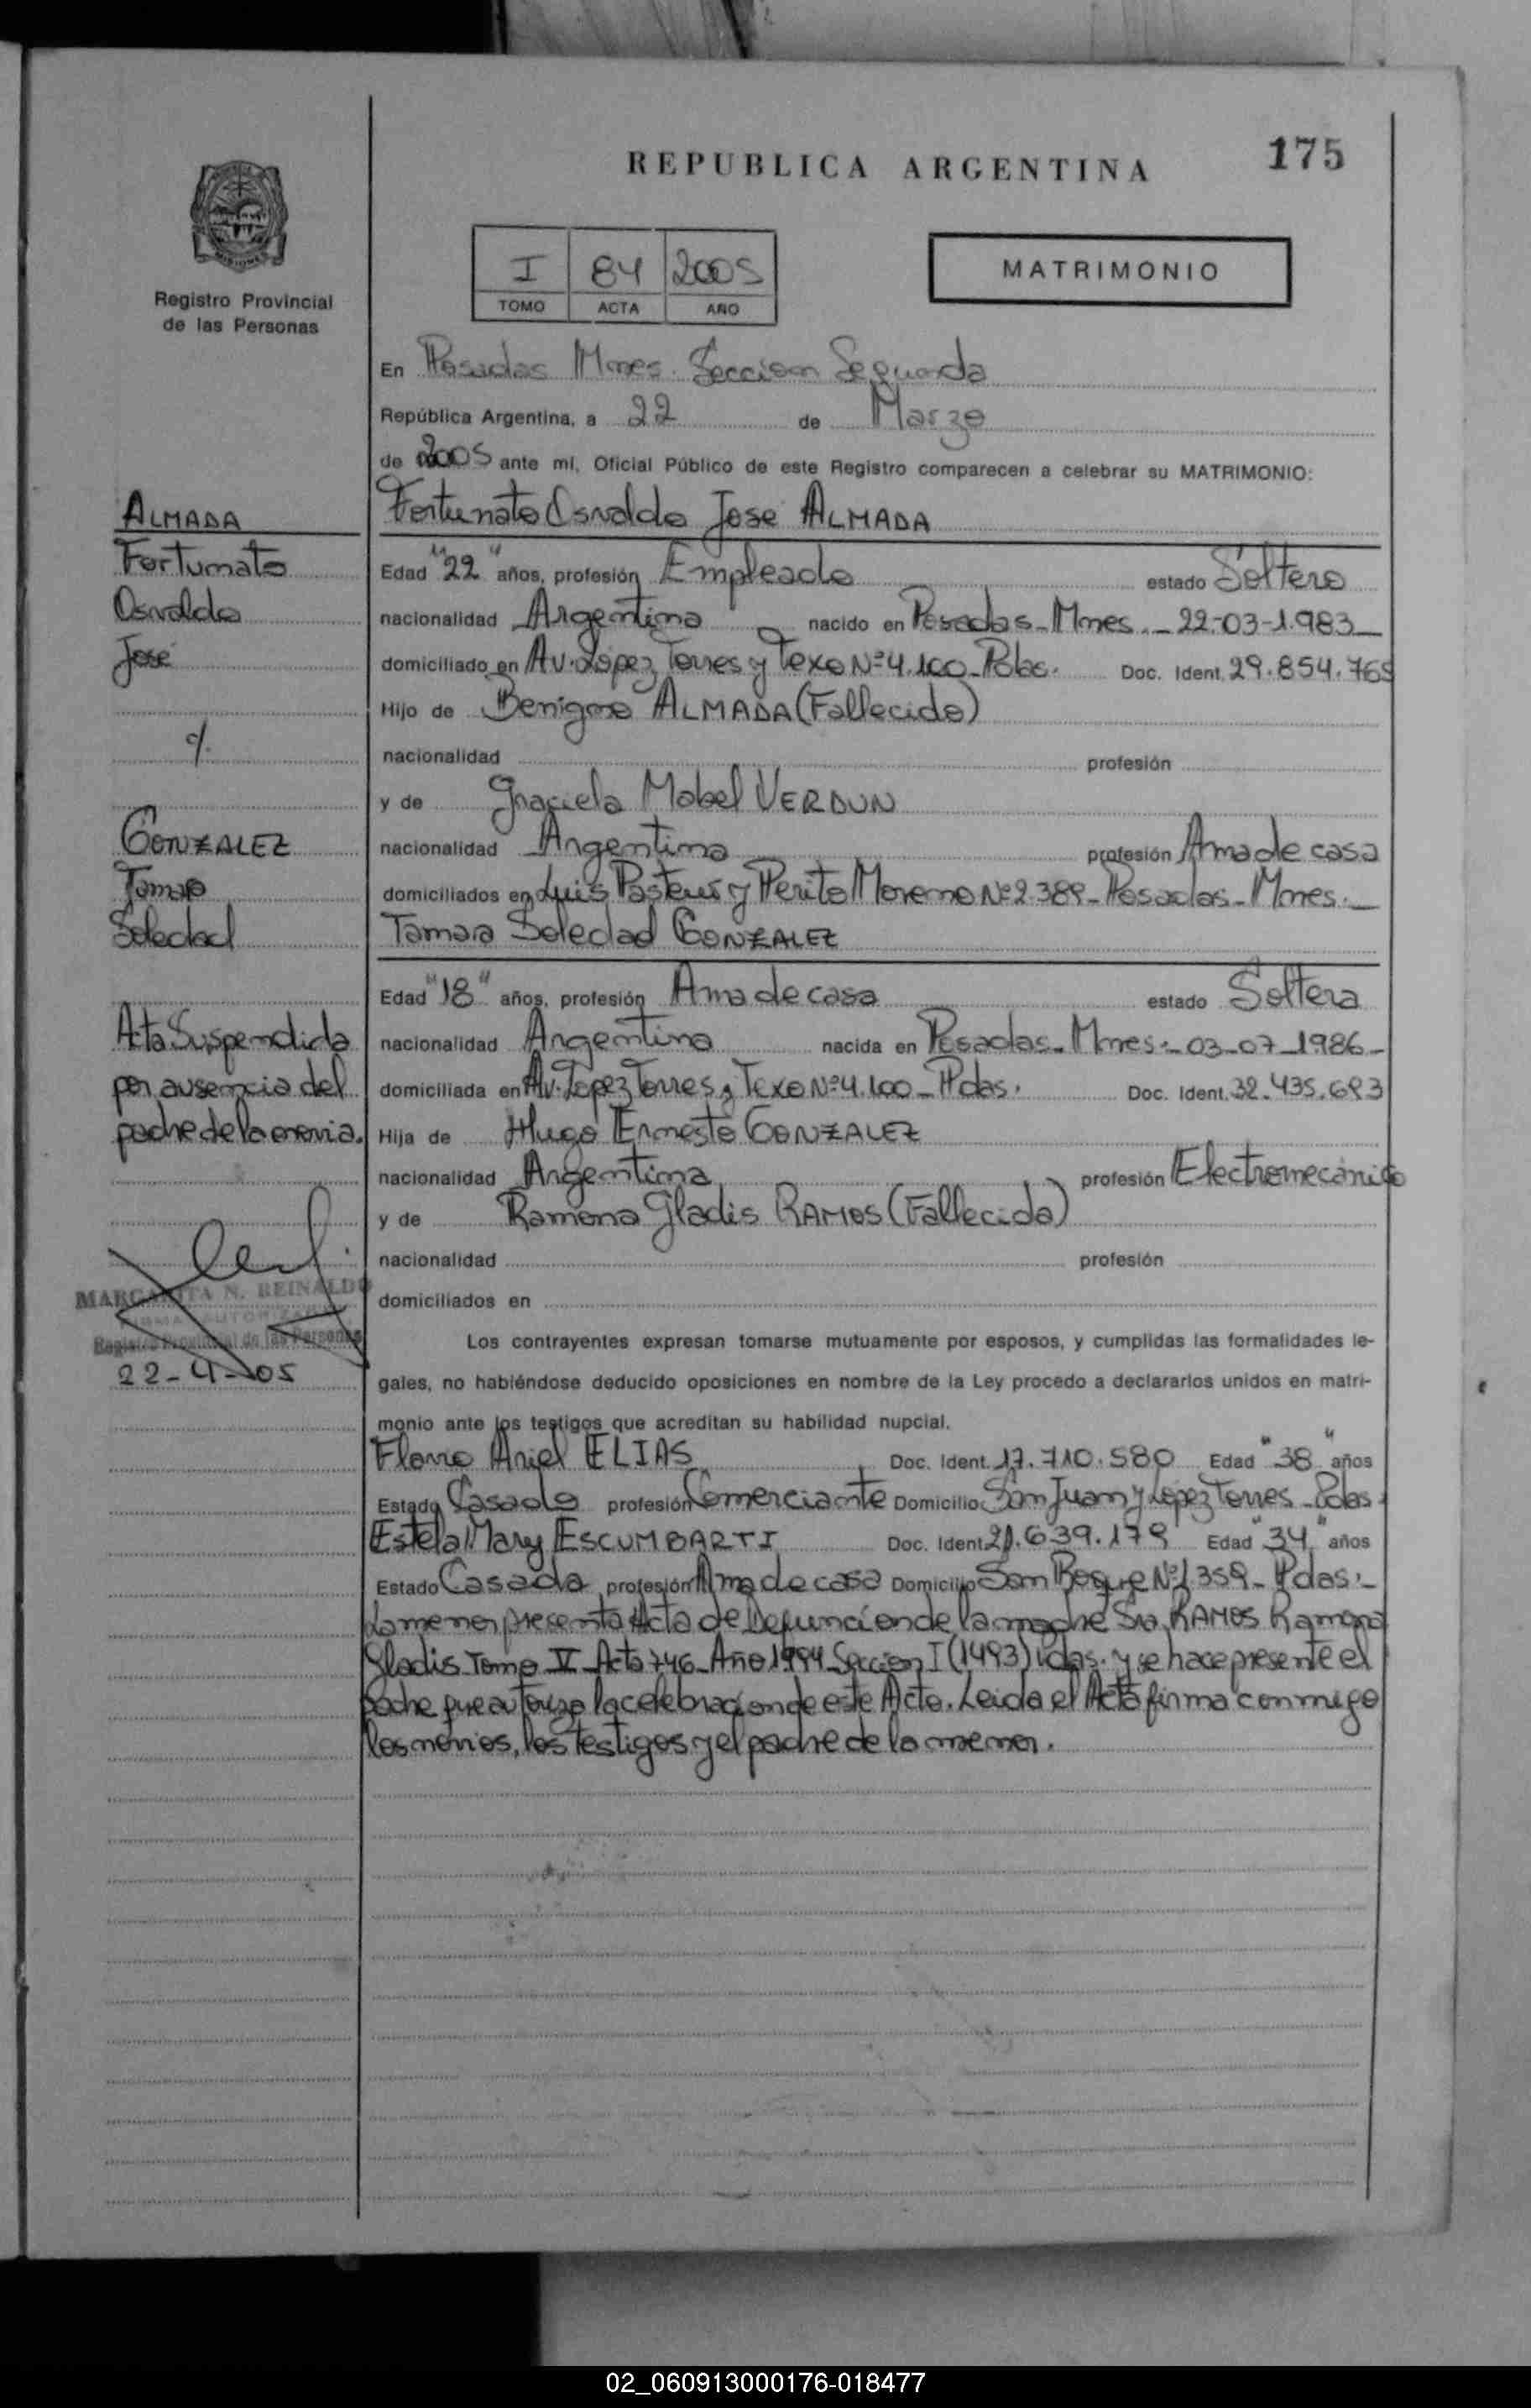 REPUBLICA ARGENTINA
175
MISIONES
Registro Provincial
de las Personas
I 84 2005
TOMO ACTA AÑO
MATRIMONIO
En Posadas Mnes. Seccion Segunda
República Argentina, a 22 de Marzo
de 2005 ante mí, Oficial Público de este Registro comparecen a celebrar su MATRIMONIO:
Fortunato Osvaldo Jose ALMADA
Edad "22" años, profesión Empleado estado Soltero
nacionalidad Argentina nacido en Posadas-Mnes.- 22-03-1.983-
domiciliado en Av. Lopez Torres y Texo Nº4.100-Pdas. Doc. Ident. 29.854.765
Hijo de Benigno ALMADA (Fallecido)
nacionalidad profesión
y de Graciela Mabel VERDUN
nacionalidad Argentina profesión Ama de casa
domiciliados en Luis Pasteur y Perito Moreno Nº2.389-Posadas-Mnes.-
Tamara Soledad GONZALEZ
Edad "18" años, profesión Ama de casa estado Soltera
nacionalidad Argentina nacida en Posadas-Mnes.- 03-07-1986-
domiciliada en Av. Lopez Torres y Texo Nº4.100-Pdas. Doc. Ident. 32.435.693
Hija de Hugo Ernesto GONZALEZ
nacionalidad Argentina profesión Electromecánico
y de Ramona Gladis RAMOS (Fallecida)
nacionalidad profesión
domiciliados en
Los contrayentes expresan tomarse mutuamente por esposos, y cumplidas las formalidades le-
gales, no habiéndose deducido oposiciones en nombre de la Ley procedo a declararlos unidos en matri-
monio ante los testigos que acreditan su habilidad nupcial.
Flavio Ariel ELIAS Doc. Ident. 17.710.580 Edad "38" años
Estado Casado profesión Comerciante Domicilio San Juan y Lopez Torres-Pdas.
Estela Mary ESCUMBARTI Doc. Ident. 21.639.179 Edad "34" años
Estado Casada profesión Ama de casa Domicilio San Roque Nº1.359-Pdas.-
La menor presenta Acta de Defuncion de la madre Sra. RAMOS Ramona
Gladis Tomo V Acta 746-Año 1994-Seccion I (1493) Pdas. y se hace presente el
padre que autoriza la celebracion de este Acto. Leida el Acta firma conmigo
los novios, los testigos y el padre de la menor.
ALMADA
Fortunato
Osvaldo
José
c/.
GONZALEZ
Tamara
Soledad
Acta Suspendida
por ausencia del
padre de la novia.
MARGARITA N. REINALDO
FIRMA AUTORIZADA
Registro Provincial de las Personas
22-4-05
02_060913000176-018477